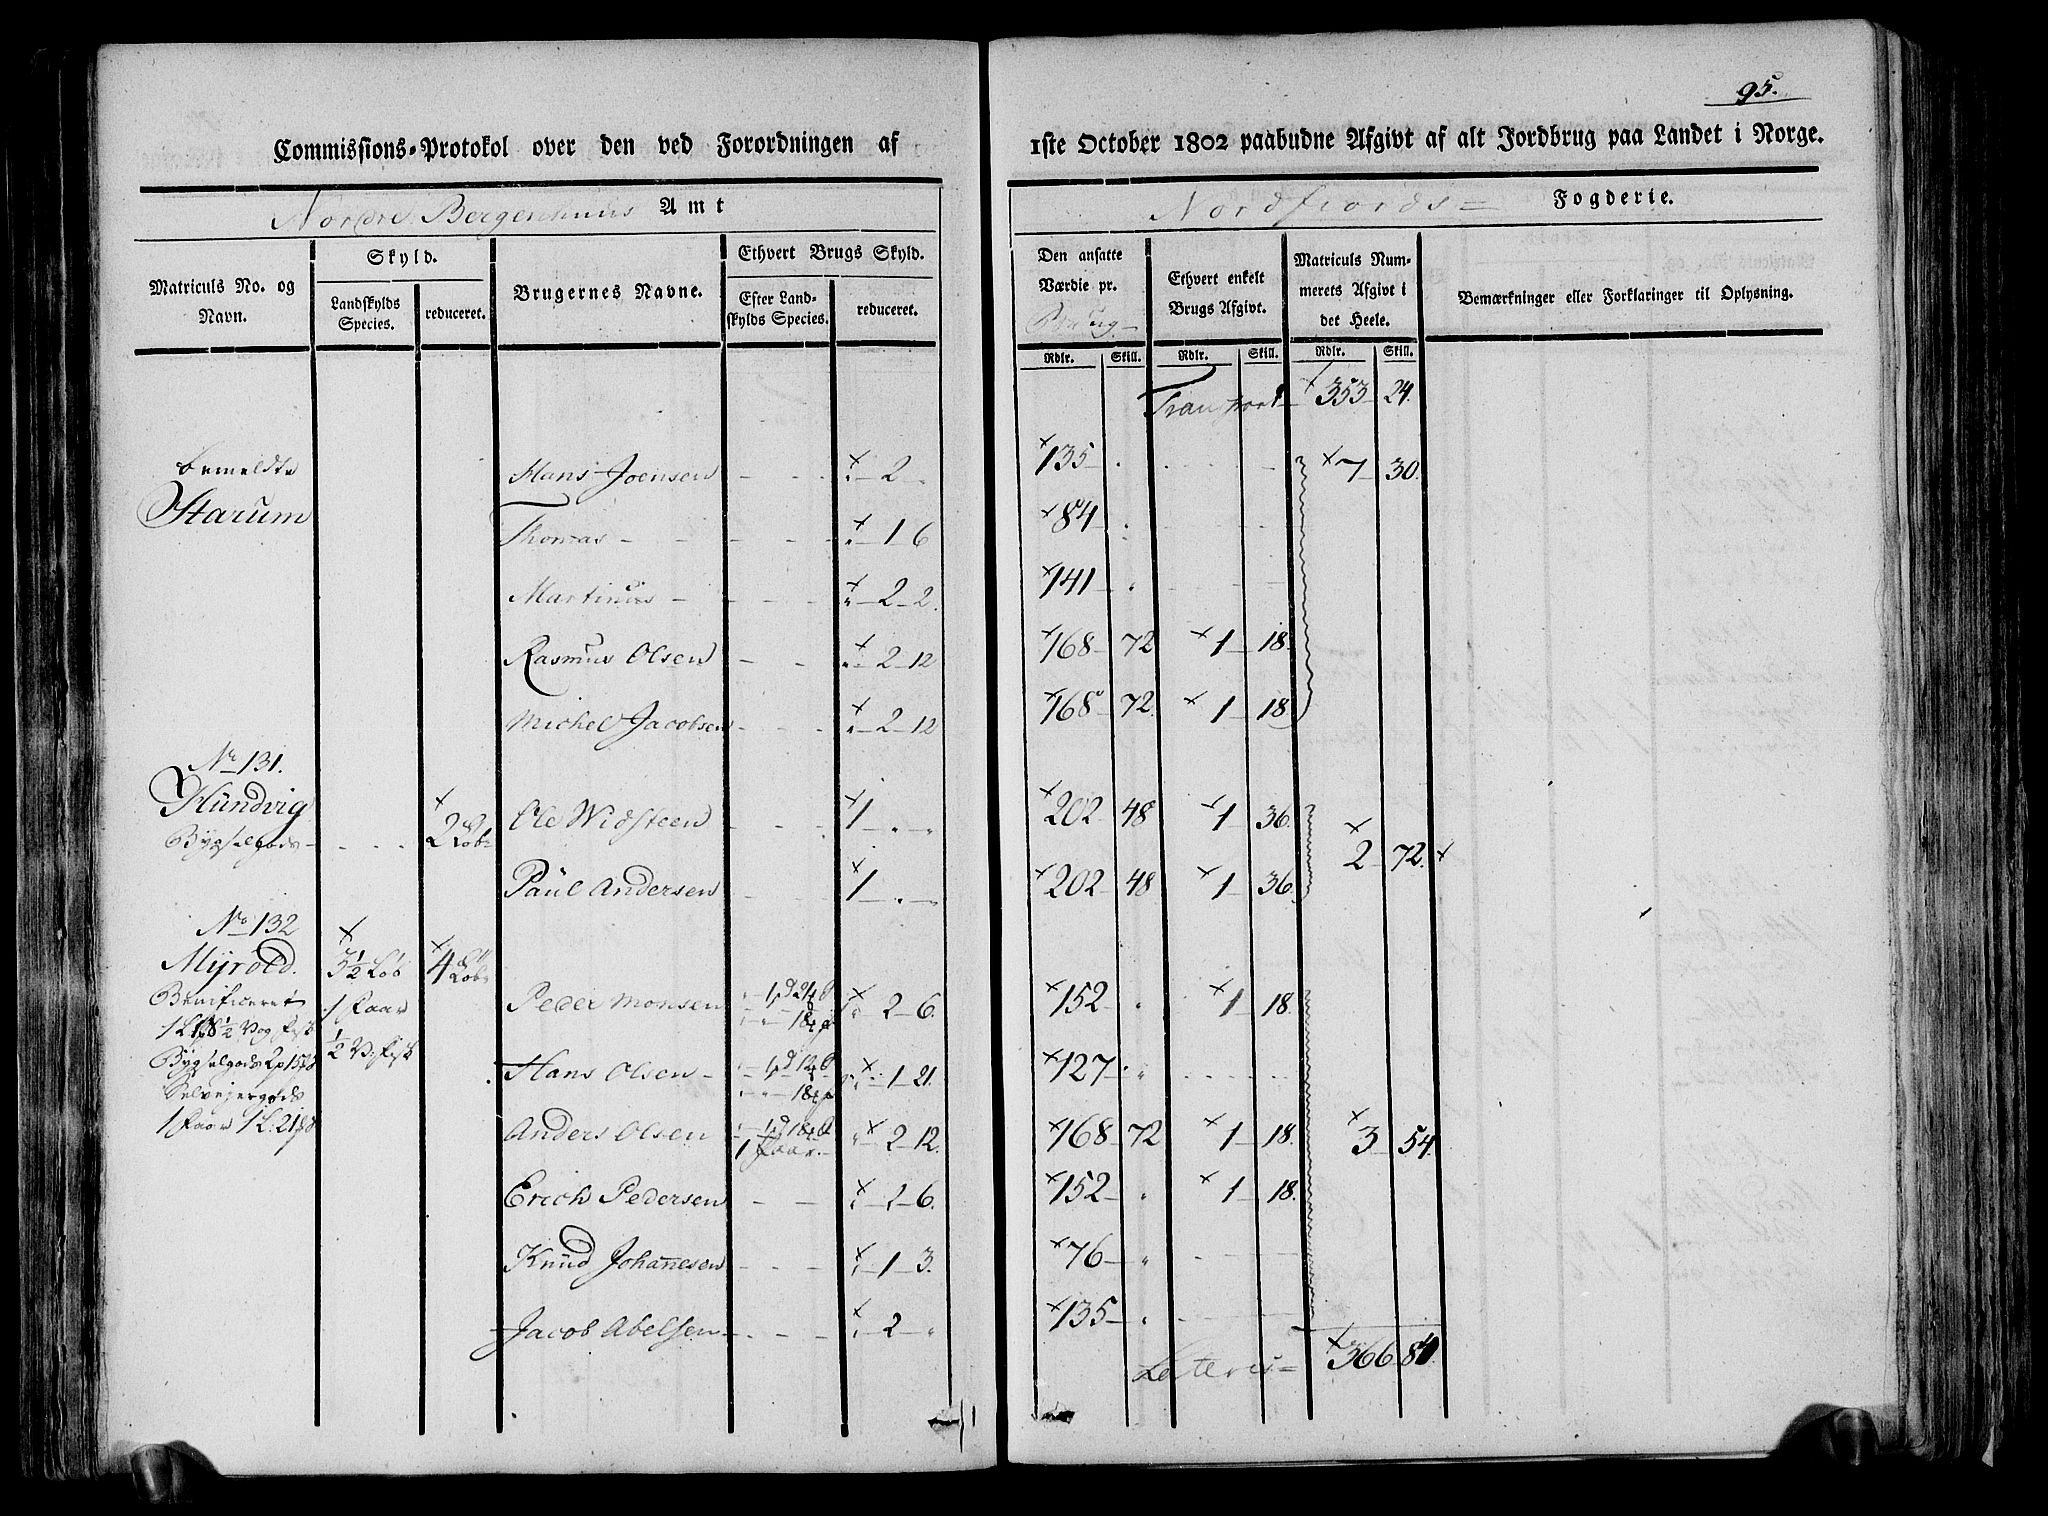 95.
Commissions-Protokol over den ved Forordningen af 1ste October 1802 paabudne Afgivt af alt Jordbrug paa Landet i Norge.
Nordre Bergenhuus Amt Nordfiords= Fogderie.
Matriculs No. og Navn.
Skyld.
Landskylds Species.
reduceret.
Brugernes Navne.
Ethvert Brugs Skyld.
Efter Landskylds Species.
reduceret.
Den ansatte Værdie pr. Brug
Rdlr. Skill.
Ethvert enkelt Brugs Afgivt.
Rdlr. Skill.
Matriculs Nummerets Afgivt i det Heele.
Rdlr. Skill.
Bemærkninger eller Forklaringer til Oplysning.
Transport 353 24.
bemeldte Hans Joensen 2 135 7 30.
Starum Thomas 1 6 84
Martinus 2 2. 141
Rasmus Olsen 2 12 168 72 1 18.
Michel Jacobsen 2 12 168 72. 1 18
No 131.
Hundvig Ole Widsteen 1 202 48 1 36.
Bygselgods 2 Løb 2 72.
Paul Andersen 1 202 48 1 36.
No 132
Myrold. 3 1/2 Løb 4 Løb
Benificeret 1 Faar Peder Monsen 2 6. 152 1 18.
1/2 V. fisk
Bygselgods Hans Olsen 1 21. 127
Selvejergods
1 Faar Anders Olsen 1 Faar 2 12. 168 72 1 18. 3 54.
Erich Pedersen 2 6. 152 1 18.
Knud Johannesen 1 3. 76
Jacob Abelsen 2 135
Lateris= 366